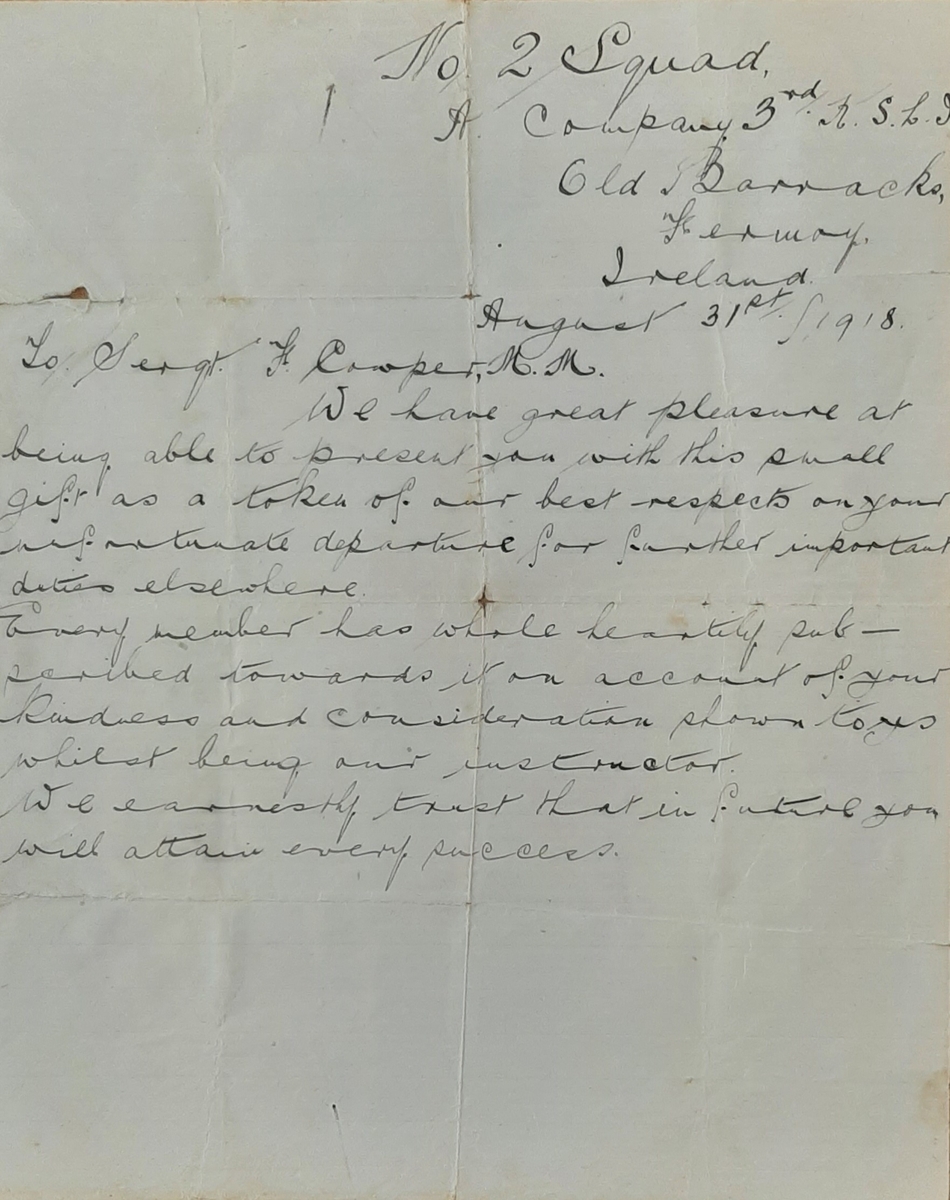 No. 2 Squad,
A. Company 3rd. R. S. L. I
Old Barracks,
Fermoy.
Ireland.
August 31st./1918.
To, Sergt. F. Cowper, M. M.
We have great pleasure at
being able to present you with this small
gift as a token of our best respects on your
unfortunate departure for further important
duties elsewhere.
Every member has whole heartily sub-
scribed towards it on account of your
kindness and consideration shown to us
whilst being our instructor.
We earnestly trust that in future you
will attain every success.